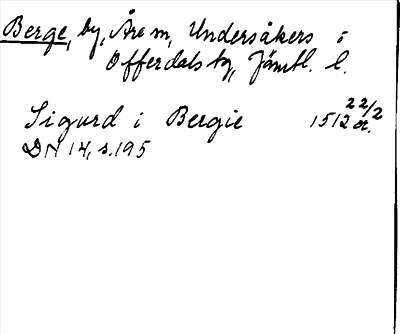 Berge, by, Åre sn, Undersåkers o
Offerdals tg, Jämtl. l.
Sigurd i Bergie 1512 22/2 or.
DN 14, s. 195